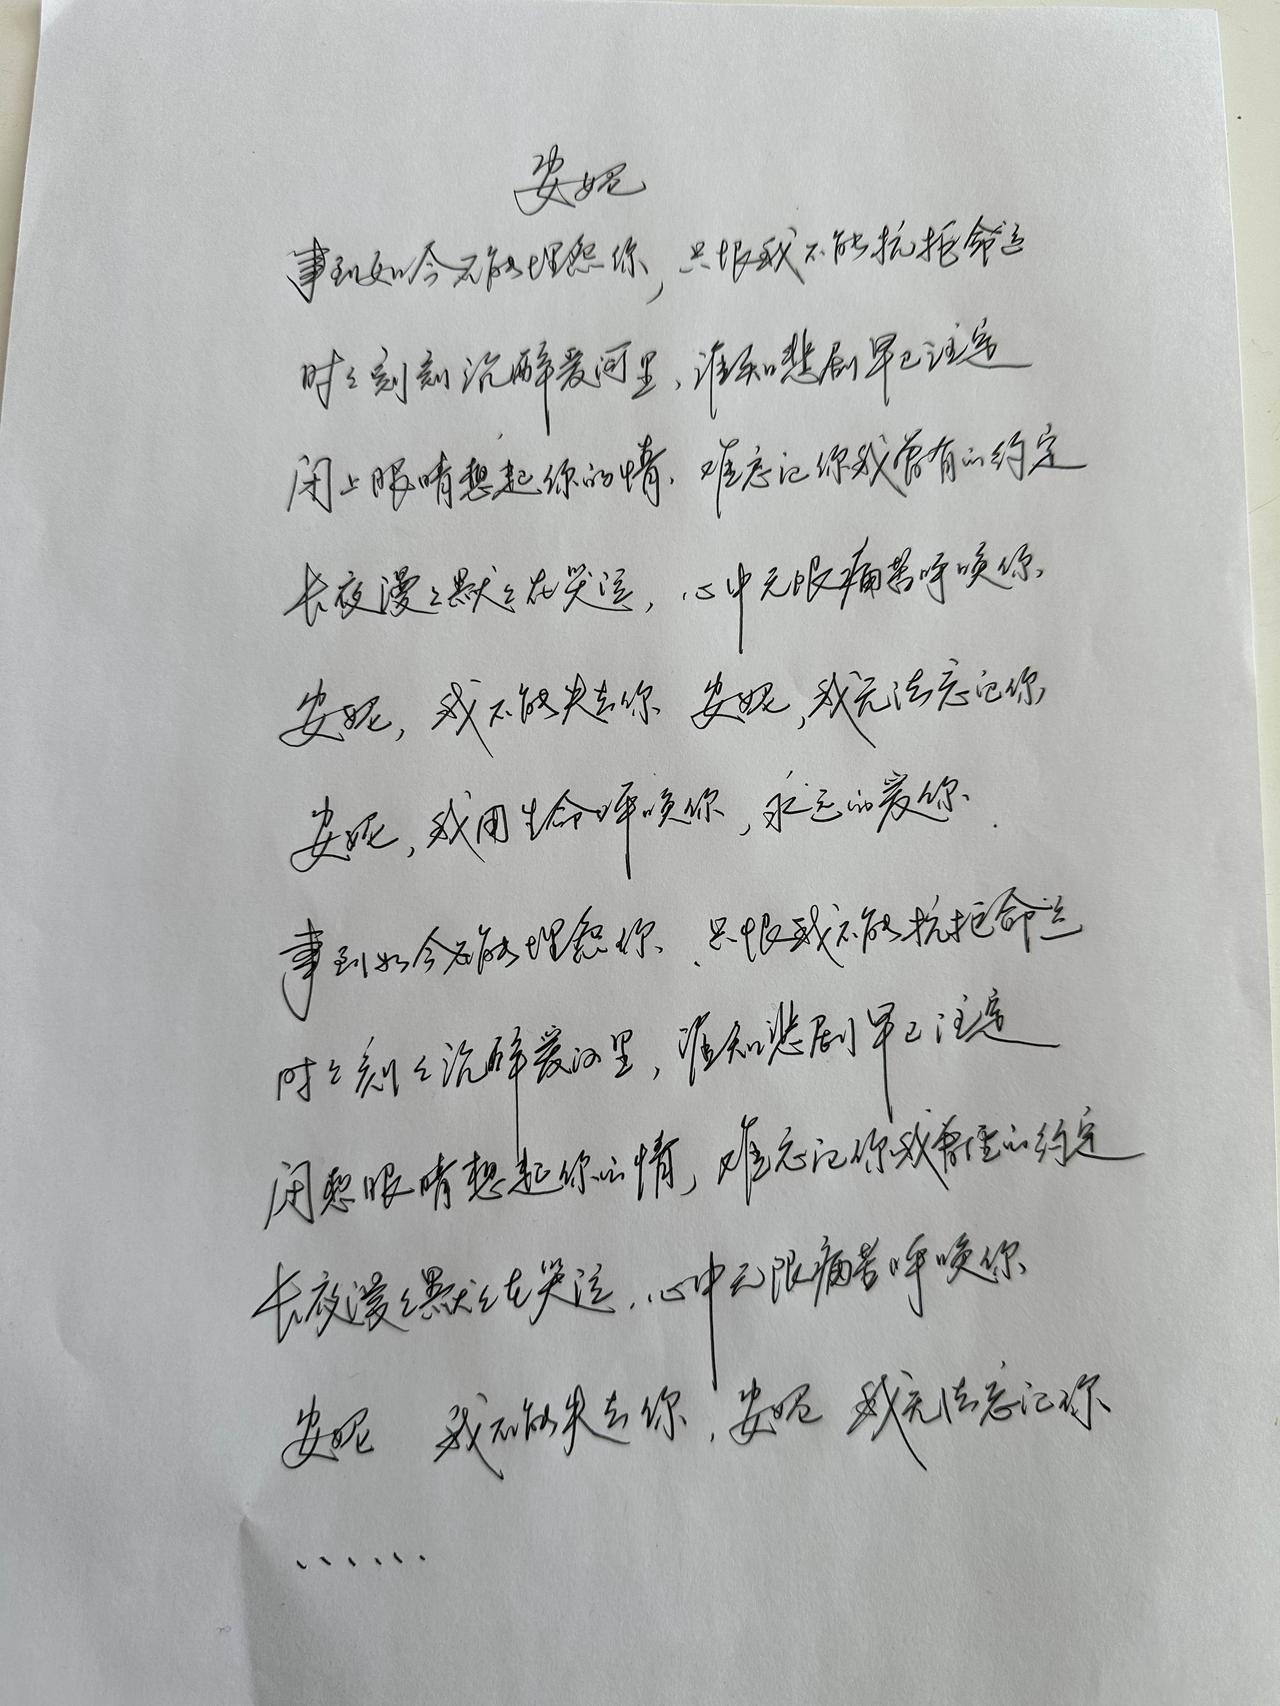 安妮
事到如今不能埋怨你，只恨我不能抗拒命运
时々刻刻沉醉爱河里，谁知悲剧早已注定
闭上眼睛想起你的情，难忘记你我曾有的约定
长夜漫々默々在哭泣，心中无限痛苦呼唤你
安妮，我不能失去你 安妮，我无法忘记你
安妮，我用生命呼唤你，永远的爱你
事到如今不能埋怨你，只恨我不能抗拒命运
时々刻々沉醉爱河里，谁知悲剧早已注定
闭眼睛想起你的情，难忘记你我曾有的约定
长夜漫々默々在哭泣，心中无限痛苦呼唤你
安妮 我不能失去你，安妮 我无法忘记你
……